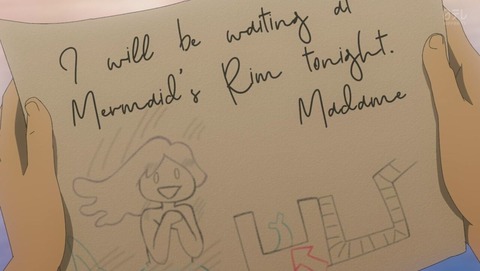 I will be waiting at
Mermaid's Rim tonight.
Madame